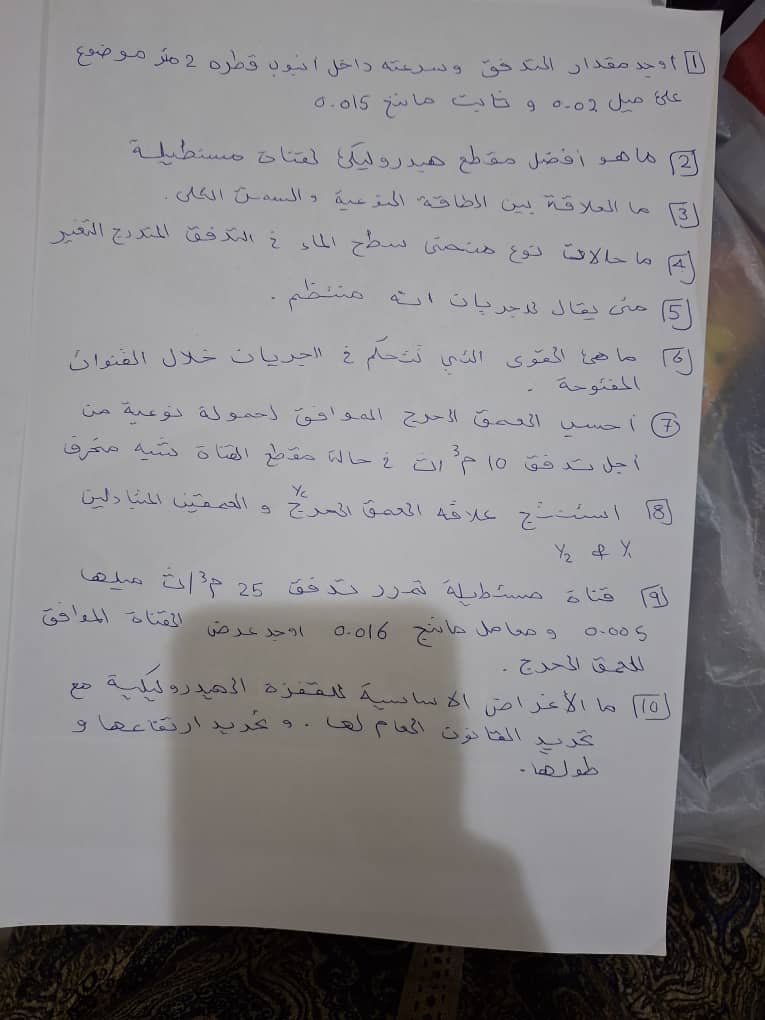 1 أوجد مقدار التدفق وسرعته داخل انبوب قطره 2 متر موضوع
على ميل 0.02 و ثابت ماننج 0.015
2 ما هو أفضل مقطع هيدروليكي لقناة مستطيلة
3 ما العلاقة بين الطاقة النوعية والسمق الكلي.
4 ما حالات نوع منحنى سطح الماء في التدفق المتدرج التغير
5 متى يقال للجريان انه منتظم.
6 ماهي القوى التي تتحكم في الجريان خلال القنوات
المفتوحة.
7 أحسب العمق الحرج الموافق لحمولة نوعية من
أجل تدفق 10 م3/ث في حالة مقطع القناة شبه منحرف
8 استنتج علاقة العمق الحرج Yc و العمقين المتبادلين
Y1 & Y2
9 قناة مستطيلة تمرر تدفق 25 م3/ث ميلها
0.005 ومعامل ماننج 0.016 اوجد عرض القناة الموافق
للعمق الحرج.
10 ما الأغراض الاساسية للقفزة الهيدروليكية مع
تحديد القانون العام لها. و تحديد ارتفاعها و
طولها.